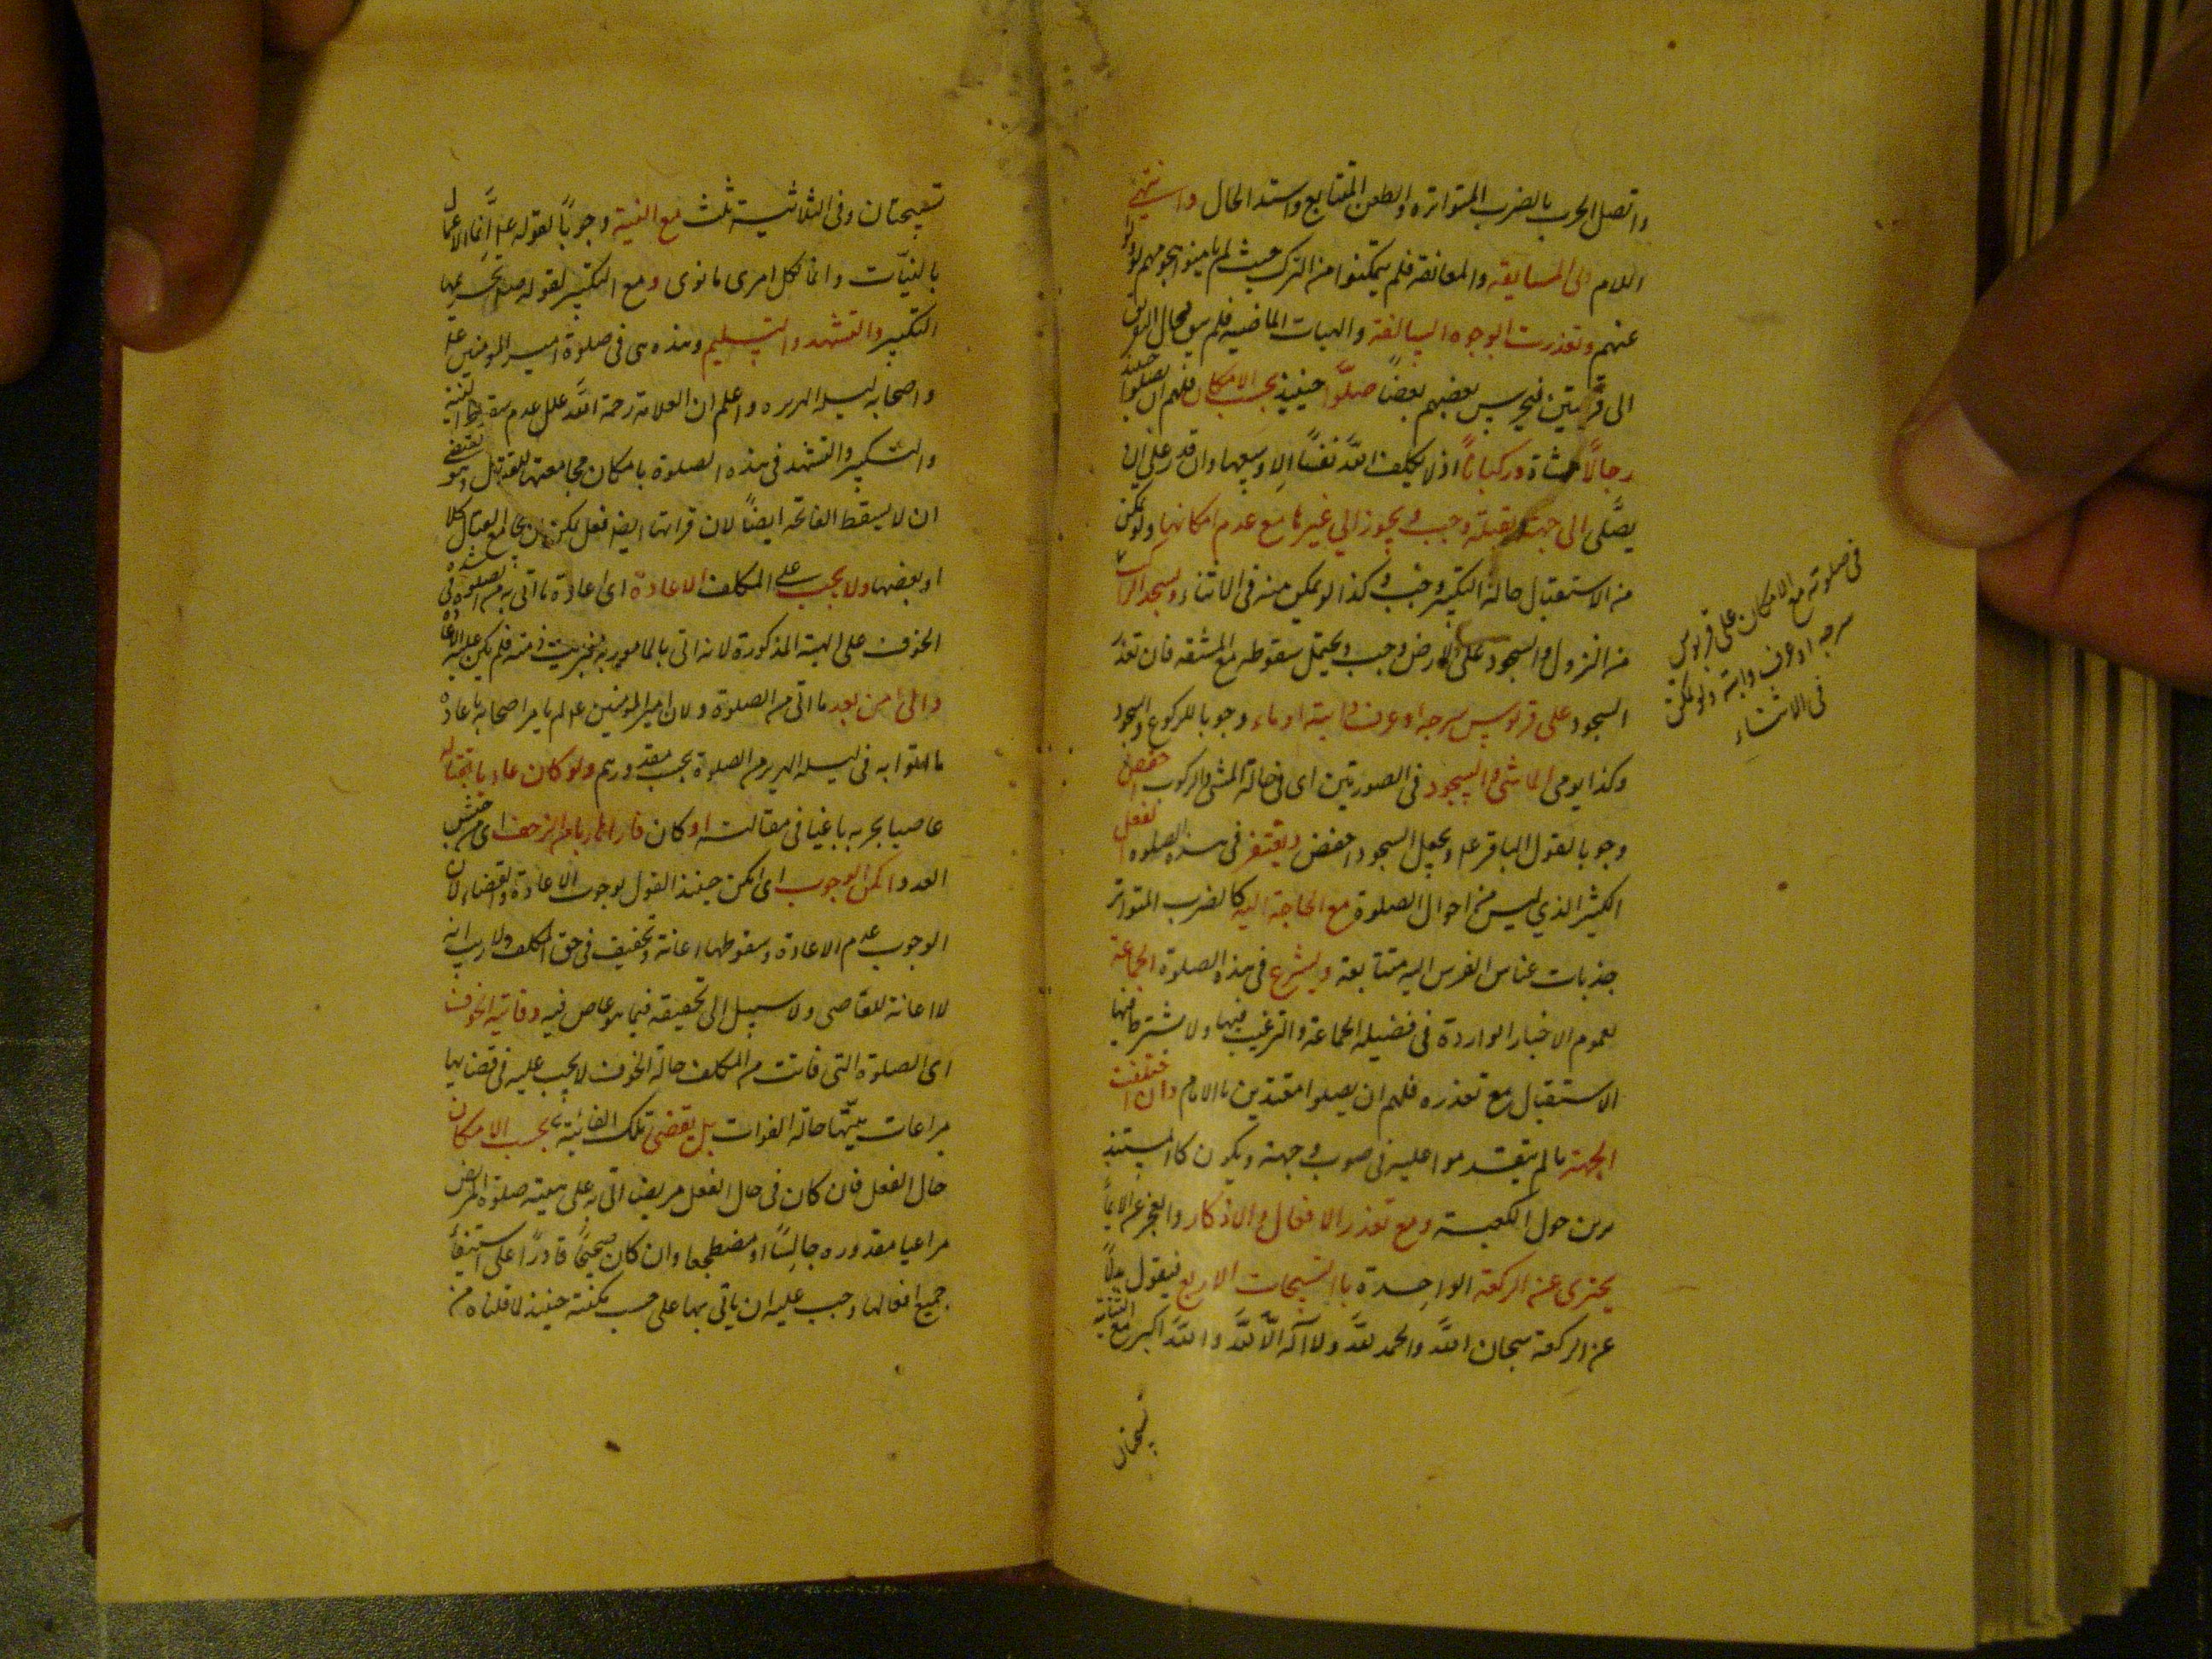 واتصل الحرب بالضرب المتواتره والطعن المتتابع واشتد الحال وانتهى
اللام الى المسايفة والمعانقة فلم يتمكنوا من الترك حيث لم يامنوا هجومهم لو ولوا
عنهم وتعذرت الوجوه السالفة والهيات الماضيه فلم يبق مجال
الى فرقتين فيحرس بعضهم بعضاً صلّوا حينئذ بحسب الامكان فلهم ان يصلوا حينئذ
رجالاً مشاة وركباناً اذ لا يكلف الله نفساً الا وسعها وان قدر على ان
يصلى الى جهة القبلة وجب ويجوز الى غيرها مع عدم امكانها ولو تمكن
من الاستقبال حالة التكبير وجب وكذا لو تمكن منه فى الاثناء ويسجد الراكب
من النزول والسجود على الارض وجب ويحتمل سقوطه مع المشقه فان تعذر
السجود على قربوس سرجه او عرف دابته اوماء وجوبا للركوع والسجود
وكذا يومى الماشى والسجود فى الصورتين اى فى حالة المشى والركوب اخفض
وجوبا لقول الباقر عم ويجعل السجود اخفض ويغتفر فى هذه الصلوه الفعل
الكثير الذي ليس من احوال الصلوة مع الحاجة اليه كالضرب المتواتر
جذبات عنان الفرس اليه متتابعة ويشرع فى هذه الصلوة الجماعة
لعموم الاخبار الواردة فى فضيلة الجماعة والترغيب فيها ولا يشترط فيها
الاستقبال مع تعذره فلهم ان يصلوا مقتدين بالامام وان اختلفت
الجهة ما لم يتقدموا عليه فى صوب وجهة ويكون كالمستد
يرين حول الكعبة ومع تعذر الافعال والاذكار والعجز عن الايماء
يجتزى عن الركعة الواحدة بالتسبيحات الاربع فيقول بدلاً
عن الركعة سبحان الله والحمد لله ولا اله الا الله والله اكبر مع الثنائية
تسبيحتان
فى صلوته مع الامكان على قربوس
سرجه او عرف دابته ولو تمكن
فى الاثناء
تسبيحتان وفى الثلاثية ثلث مع النية وجوباً لقوله عم انّما الاعمال
بالنيّات وانما لكل امرئ ما نوى ومع التكبير لقوله صلم تحريمها
التكبير والتشهد والتسليم وهذه هى فى صلوة امير المؤمنين عم
واصحابه ليلة الهريره واعلم ان العلامة رحمه الله علل عدم سقوط النية
والتكبير والتشهد فى هذه الصلوة بامكان مجامعتها للقتال وهو يقتضى
ان لا يسقط الفاتحه ايضاً لان قراتها ايضا فعل يمكن ان يجامع القتال كلا
او بعضها ولا يجب على المكلف الاعادة اى اعادة ما اتى به من الصلوة فى شدة
الخوف على الهيئة المذكورة لانه اتى بالمامور به فخرج ذمته فلم يكن عليه الاعادة
وان امن بعد ما اتى من الصلوة ولان امير المؤمنين عم لم يامر اصحابه باعادة
ما اتوا به فى ليلة الهرير من الصلوة بحسب مقدورهم ولو كان عاديا بقتاله
عاصيا بحربه باغيا فى مقاتلته او كان فاراً هاربا من الزحف اى من جيش
العدو امكن الوجوب اى امكن حينئذ القول بوجوب الاعادة والقضاء لان
الوجوب عدم الاعادة وسقوطها اعانة وتخفيف فى حق المكلف ولا ريب انه
لا اعانة للعاصى ولا سبيل الى تخفيفه فيما هو عاص فيه وفايتة الخوف
اى الصلوة التى فاتت من المكلف حالة الخوف لا يجب عليه فى قضائها
مراعات هيئتها حالة الفوات بل يقضى تلك الفائتة بحسب الامكان
حال الفعل فان كان فى حال الفعل مريضا اتى به على هيئة صلوة المريض
مراعيا مقدوره جالساً او مضطجعا وان كان صحيحاً قادراً على استيفاء
جميع افعالها وجب عليه ان ياتى بها على حسب مكنته حينئذ لا قلناه من